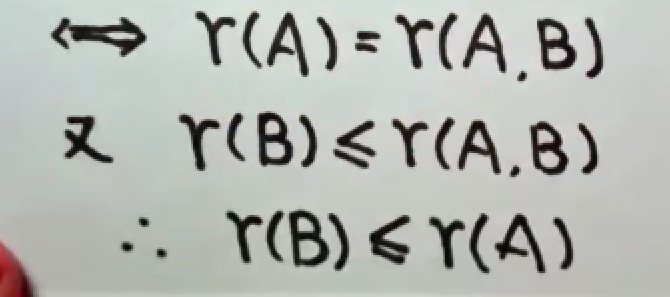 ⇔ r(A)=r(A,B)
又 r(B)≤r(A,B)
∴ r(B)≤r(A)